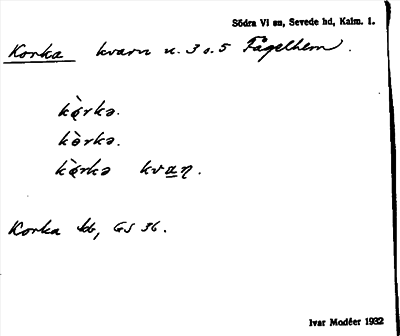 Södra Vi sn, Sevede hd, Kalm. l.
Korka kvarn u. 3 o. 5 Fågelhem.
kòrkə.
kòrkə.
kòrkə kvaɳ.
Korka kb, GS 36.
Ivar Modéer 1932